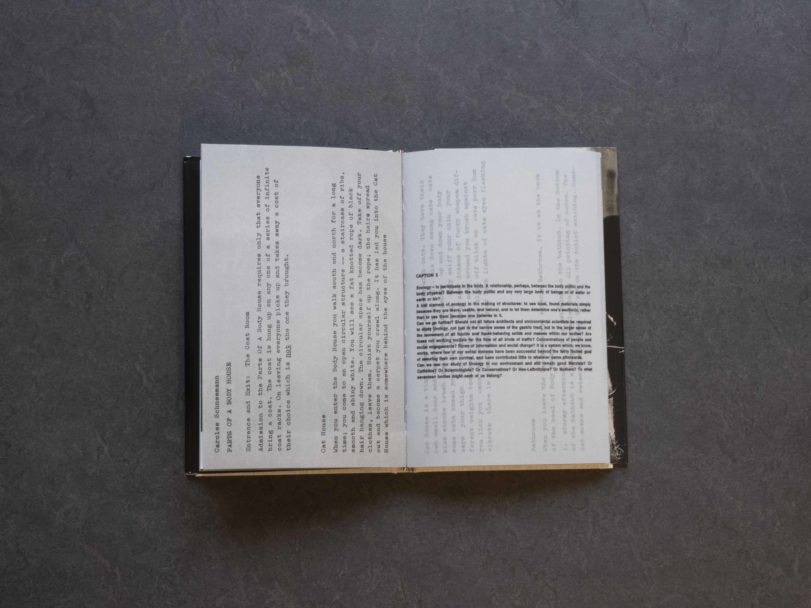 Carolee Schneemann
PARTS OF A BODY HOUSE
Entrance and Exit: The Coat Room
Admission to the Parts Of A Body House requires only that everyone
bring a coat. The coat is hung up on any one of a series of infinite
coat racks. On leaving everyone picks up and takes away a coat of
their choice which is not the one they brought.
Cat House
When you enter the Body House you walk south and north for a long
time; you come to an open circular structure -- a staircase of ribs,
smooth and shiny white. You will see a fat knotted rope of black
hair hanging down. The circular space has become dark. Take off your
clothes, leave them. Hoist yourself up the rope; the hairs spread
out and become a carpet you travel along. It has led you into the Cat
House which is somewhere behind the eyes of the house
CAPTION 3
Ecology — to participate in the body. A relationship, perhaps, between the body politic and the
body physical? Between the body politic and any very large body of beings or of water or
earth or air?
A vital element of ecology in the making of structures: to use local, found materials simply
because they are there, usable, and natural, and to let them determine one's aesthetic, rather
than to use them because one believes in it.
Can we go further? Should not all future architects and environmental scientists be required
to study Urology, not just in the narrow sense of the gastric tract, but in the larger sense of
the movement of all liquids and liquid-behaving solids and masses within our bodies? Are
these not working models for the flow of all kinds of traffic? Concentrations of people and
social engagements? Flows of information and social change? It is a system which, we know,
works, where few of our social systems have been successful beyond the fairly limited goal
of assuring their own survival, and have contributed little to whatever came afterwards.
Can we use our study of Urology in our contruct and still remain good Marxists? Or
Catholics? Or Scientologists? Or Conservatives? Or Neo-Leftologists? Or Mothers? To what
seventeen bodies might each of us belong?